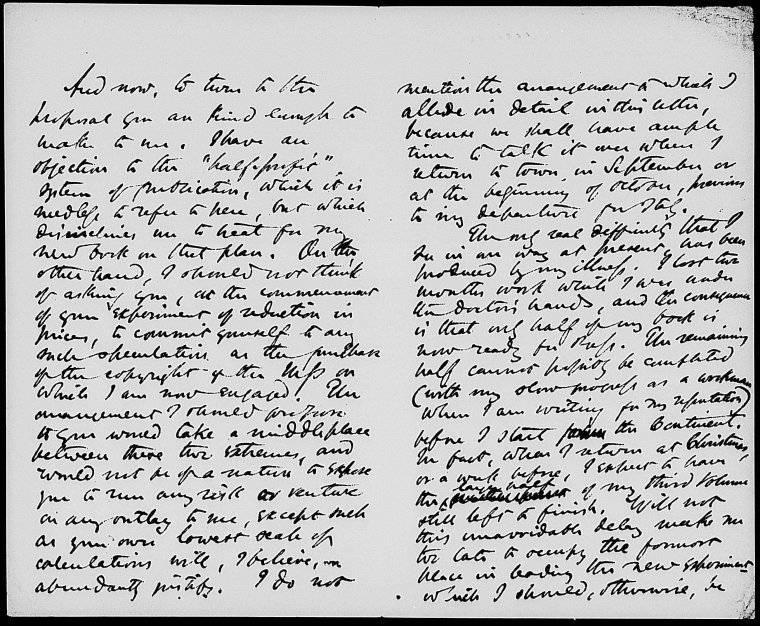 And now, to turn to the
proposal you are kind enough to
make to me. I have an
objection to the "half-profit"
system of publication, which it is
needless to refer to here, but which
disinclines me to treat for my
new book on that plan. On the
other hand, I should not think
of asking you, at the commencement
of your experiment of reduction in
prices, to commit yourself to any
such speculation as the purchase
of the copyright of the MSS on
which I am now engaged. The
arrangement I should propose
to you would take a middle place
between these two extremes, and
would not be of a nature to expose
you to run any risk or venture
on any outlay to me, except such
as your own lowest scale of
calculations will, I believe,
abundantly justify. I do not
mention the arrangement to which I
allude in detail in this letter,
because we shall have ample
time to talk it over when I
return to town, in September or
at the beginning of October, previous
to my departure for Italy.
The only real difficulty that I
see in our way at present, has been
produced by my illness. I lost two
months work while I was under
the doctor's hands, and the consequence
is that only half of my book is
now ready for Press. The remaining
half cannot possibly be completed
(with my slow progress as a workman
when I am writing for my reputation)
before I start for the Continent.
In fact, when I return at Christmas,
or a week before, I expect to have
the last half of my third volume
still left to finish. Will not
this unavoidable delay make me
too late to occupy the foremost
place in leading the new experiment
which I should, otherwise, be